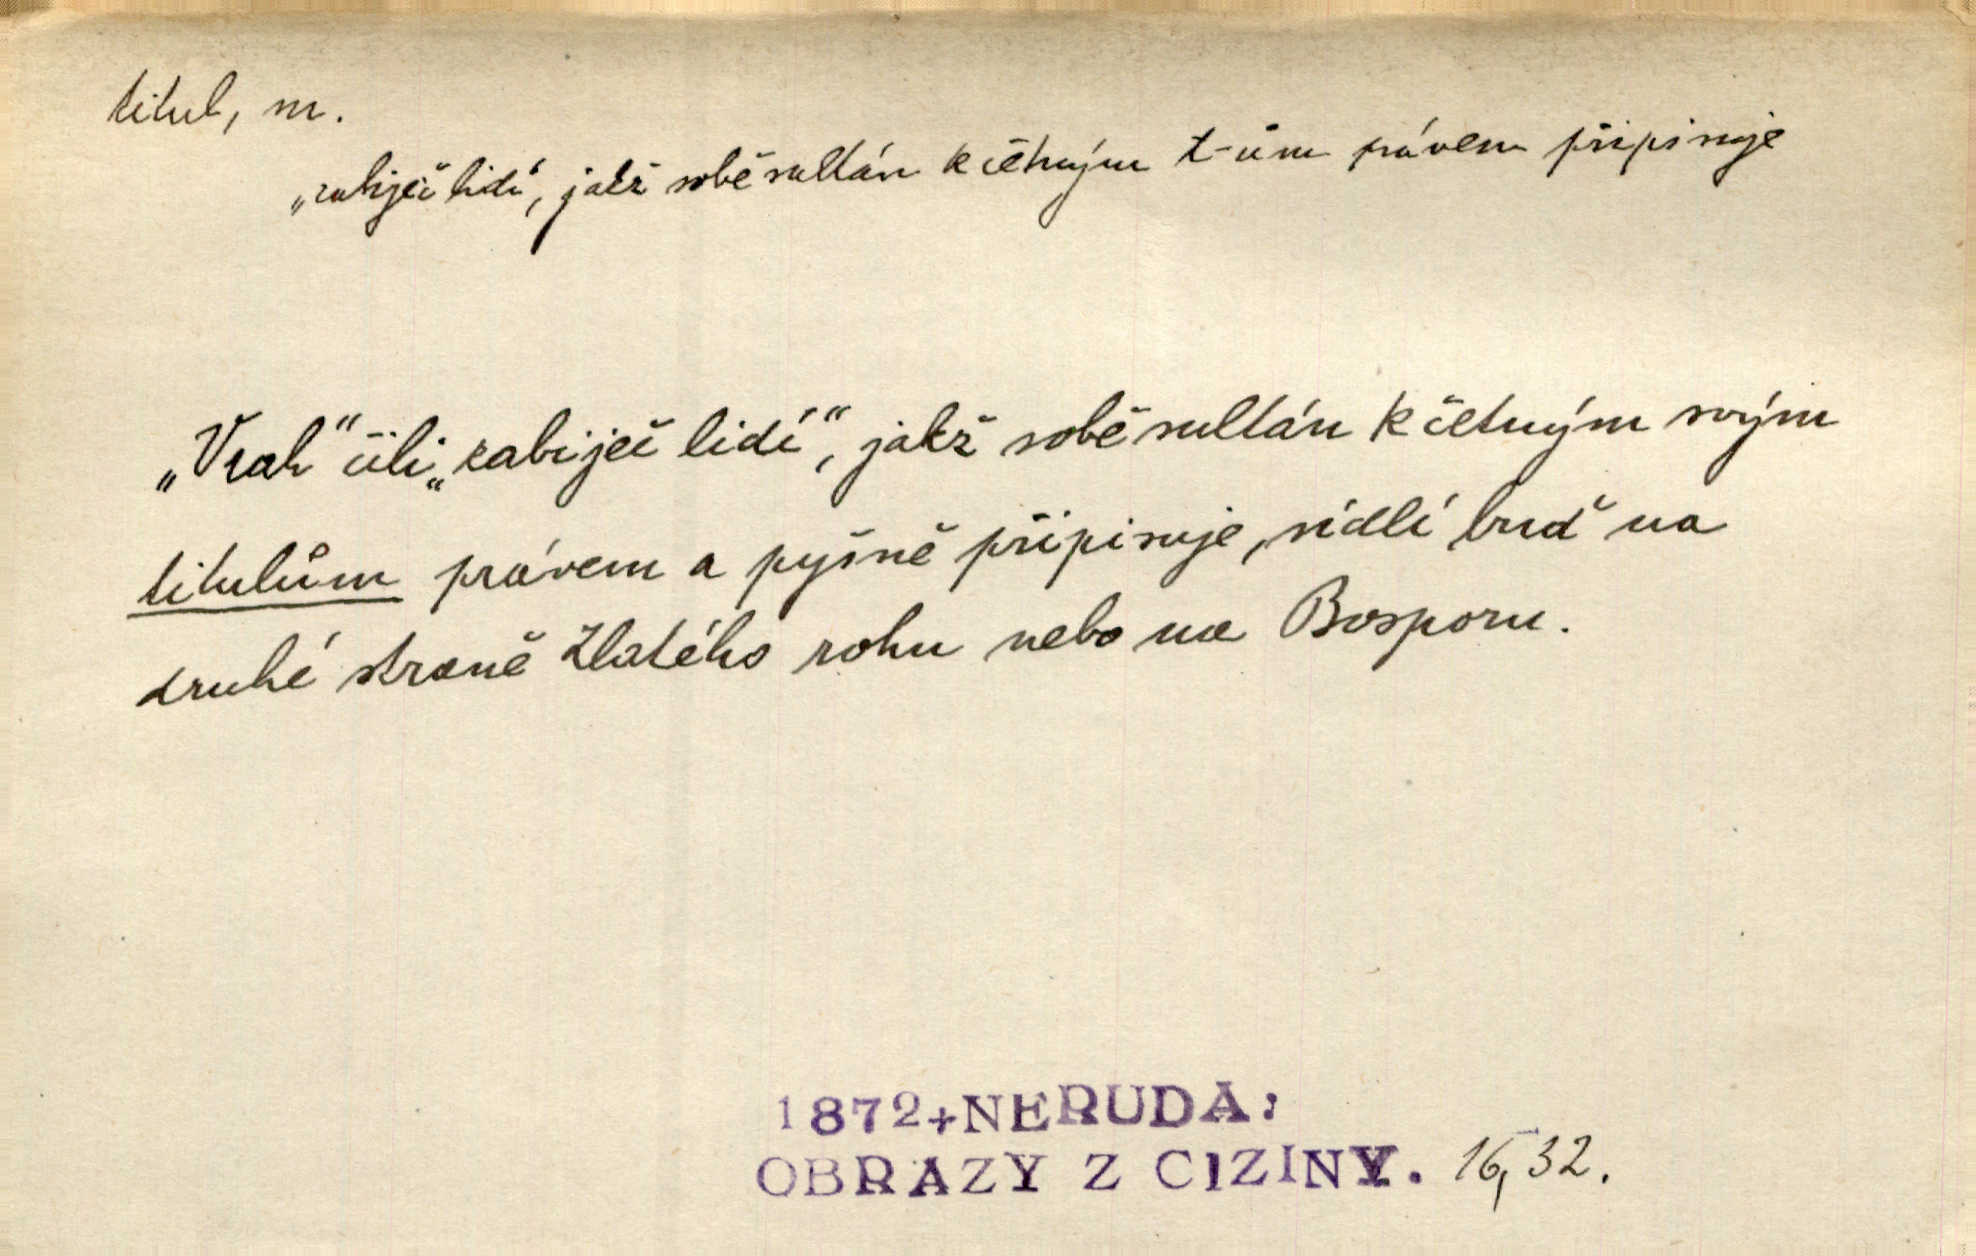 titul, m.
„zabiječ lidí“, jakž sobě sultán k četným t-ům právem připisuje
„Vrah“ čili „zabiječ lidí“, jakž sobě sultán k četným svým
titulům právem a pyšně připisuje, sídlí buď na
druhé straně Zlatého rohu nebo na Bosporu.
1872+NERUDA:
OBRAZY Z CIZINY. 16,32.